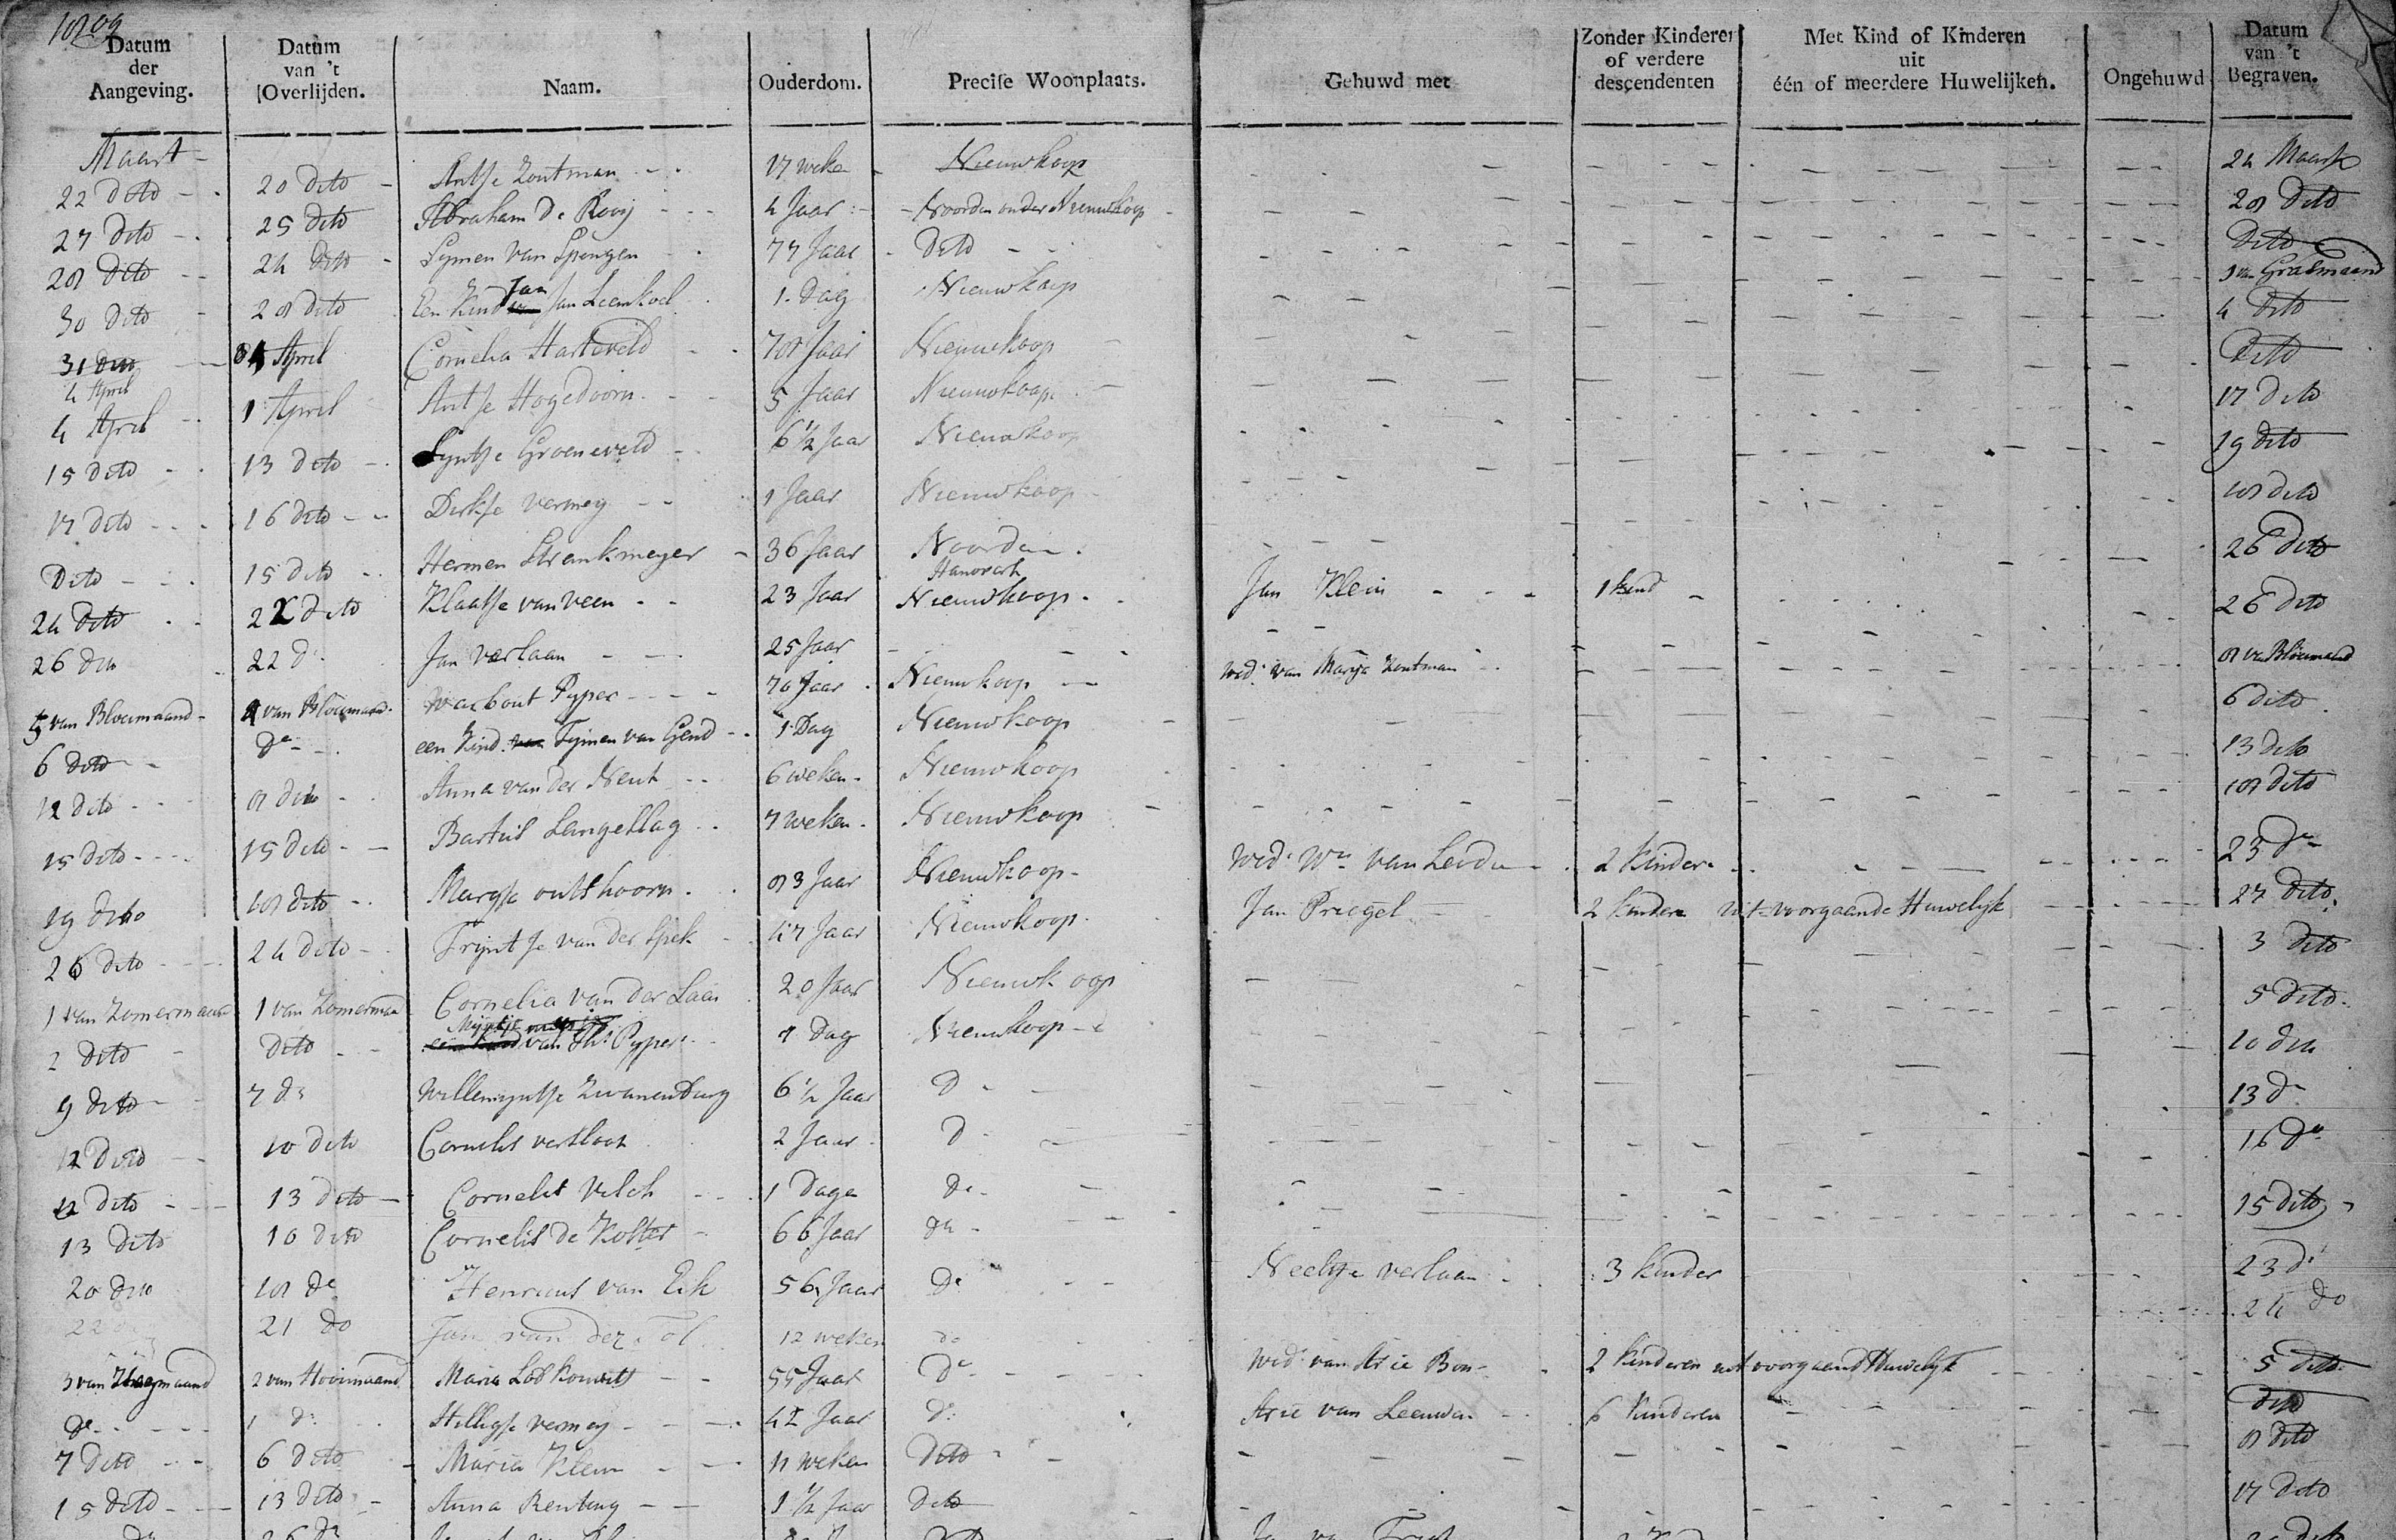 1809
Datum der Aangeving. Datum van 't Overlijden. Naam. Ouderdom. Precise Woonplaats. Gehuwd met Zonder Kinderen of verdere descendenten Met Kind of Kinderen uit één of meerdere Huwelijken. Ongehuwd Datum van 't Begraven.
Maart
22 dito 20 dito Antje Zoutman 17 weken Nieuwkoop 24 Maart
27 dito 25 dito Abraham De Rooij 4 Jaar Noorden onder Nieuwkoop 28 dito
28 dito 24 dito Symen van Spengen 77 Jaar dito dito
30 dito 28 dito Een Kind Jan Jan Leenkoel 1. dag Nieuwkoop 1 van Grasmaand
31 dito April Cornelia Harteveld 78 Jaar Nieuwkoop 4 dito
4 April
4 April 1 April Antje Hogedoorn 5 Jaar Nieuwkoop dito
15 dito 13 dito Syntje Groeneveld 6 1/2 Jaar Nieuwkoop 17 dito
17 dito 16 dito Dirkje Vermey 1 Jaar Nieuwkoop 19 dito
Dito 15 dito Hermen Strankmeyer 36 Jaar Noorden 18 dito
24 dito 22 dito Klaatje van Veen 23 Jaar Nieuwkoop Jan Klein 1 kind 26 dito
26 dito 22 do Jan Verlaan 25 Jaar 26 dito
5 van Bloeimaand 4 van Bloeimaand Warbout Pyper 70 Jaar Nieuwkoop Wed: van Marya Zoutman 8 van Bloeimaand
6 dito do een Kind van Tymen van Gend 1 Dag Nieuwkoop 6 dito
12 dito 8 dito Anna van der Neut 6 weken Nieuwkoop 13 dito
15 dito 15 dito Bartus Langeslag 7 weken Nieuwkoop 18 dito
19 dito 18 dito Marysje outshoorn 83 Jaar Nieuwkoop Wed: Wm van Leiden 2 Kinder 23 do
26 dito 24 dito Tryntje van der Spek 47 Jaar Nieuwkoop Jan Priegel 2 kinderen uit voorgaande Huwelyk 27 dito
1 van Zomermaand 1 van Zomermaand Cornelia van der Laan 20 Jaar Nieuwkoop 3 dito
2 dito dito een kind van Pyper 1 Dag Nieuwkoop 5 dito
9 dito 7 do Willemyntje Zwanenburg 6 1/2 Jaar d 10 dito
12 dito 10 dito Cornelis verkloot 2 Jaar d 13 do
12 dito 13 dito Cornelis Velch 1 Dage do 16 do
13 dito 10 dito Cornelis de Koster 66 Jaar do 15 dito
20 dito 18 do Henricus van Eik 56 Jaar do Neeltje Verlaan 3 kinder 23 do
22 do 21 do Jan van der Tol 12 weken do 24 do
3 van Hooymaand 2 van Hooimaand Maria Lobkowits 55 Jaar do Wed: van Arie Bon 2 kinderen uit voorgaend Huwelyk 5 dito
do 1 do Hilligje Vermey 42 Jaar do Arie van Leeuwen 6 kinderen dito
7 dito 6 dito Maria Klein 11 weken dito 8 dito
15 dito 13 dito Anna Renting 1 1/2 Jaar dito 17 dito